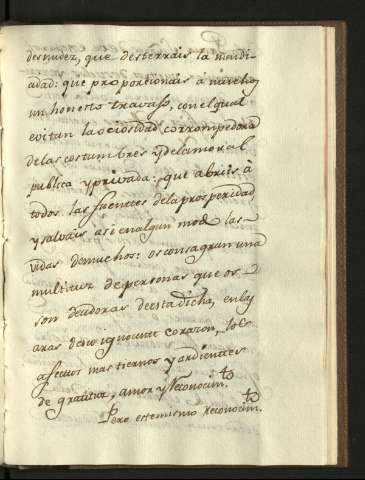 desnudez, que desterrais la mendi-
cidad: que proporcionais a muchos
un honesto travajo, con el qual
evitan la ociosidad corrompedora
de las costumbres y de la moral
publica y privada: que abris à
todos las fuentes de la prosperidad
y salvais asi en algun modo las
vidas de muchos: os consagran una
multitud de personas que os
son deudoras de esta dicha, en las
aras de su ignocente corazon, los
afectos mas tiernos y ardientes
de gratitud, amor y reconocim.to
Pero este mismo reconocim.to